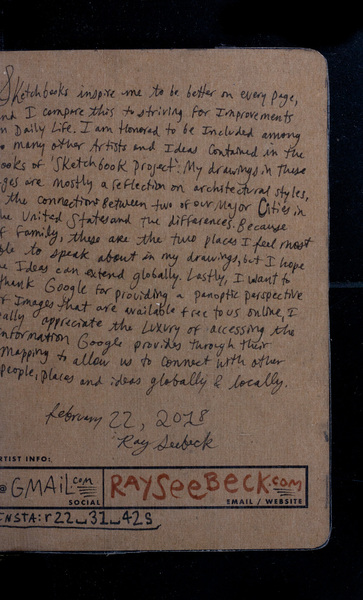 Sketchbooks inspire me to be better on every page,
nd I compare this to striving for Improvements
n Daily Life. I am Honored to be Included among
o many other Artists and Ideas contained in the
ooks of 'Sketchbook Project'. My drawings in These
ges are mostly a reflection on architectural styles,
the connections Between two of our Major Cities in
he United States and The differences. Because
f Family, these are the two places I feel most
ble to speak about in my drawings, but I hope
e Ideas can extend globally. Lastly, I want to
thank Google for providing a panoptic perspective
f Images that are available free to us online, I
ally appreciate the Luxury of accessing the
information Google provides through their
Mapping to allow us to connect with other
people, places and ideas globally & locally.
February 22, 2018
Ray Seebeck
RTIST INFO:
@GMAIL.com RAYSeeBeCK.com
SOCIAL EMAIL / WEBSITE
INSTA: r22_31_42s